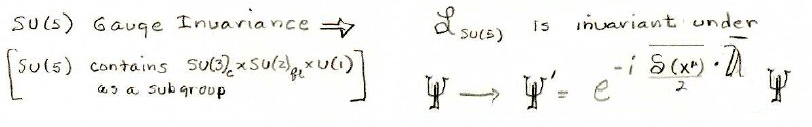 SU(5) Gauge Invariance ⇒ ℒ_SU(5) is invariant under
[SU(5) contains SU(3)_c × SU(2)_fl × U(1)
as a subgroup]
Ψ → Ψ' = e^{-i \overline{δ(x^μ)}/2 · \overline{λ}} Ψ